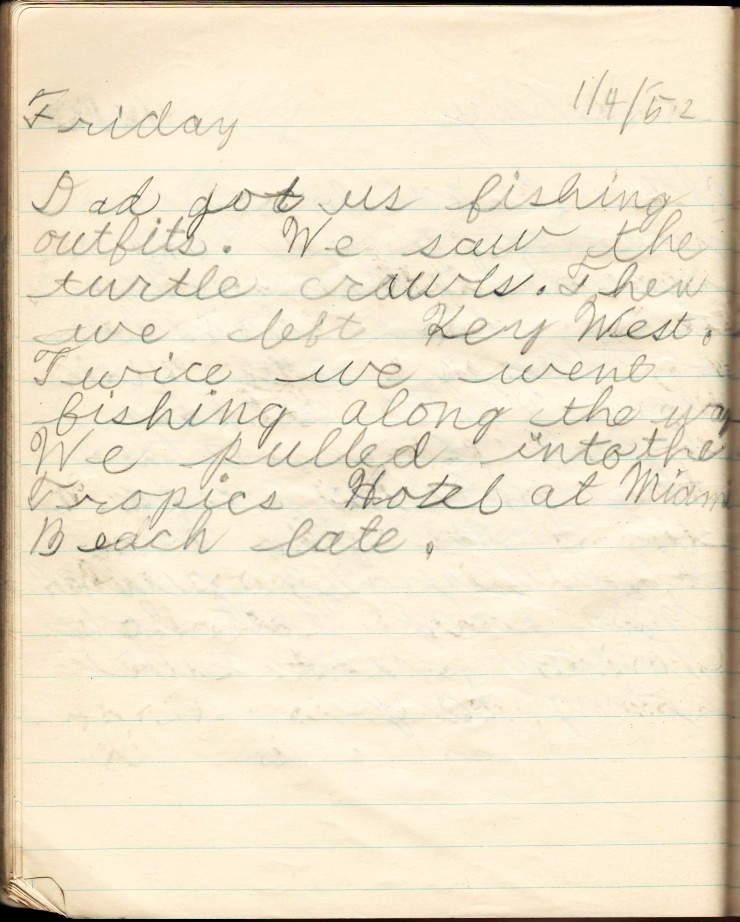 Friday 1/4/52
Dad got us fishing
outfits. We saw the
turtle crawls. Then
we left Key West.
Twice we went
fishing along the way
We pulled into the
Tropics Hotel at Miami
Beach late.